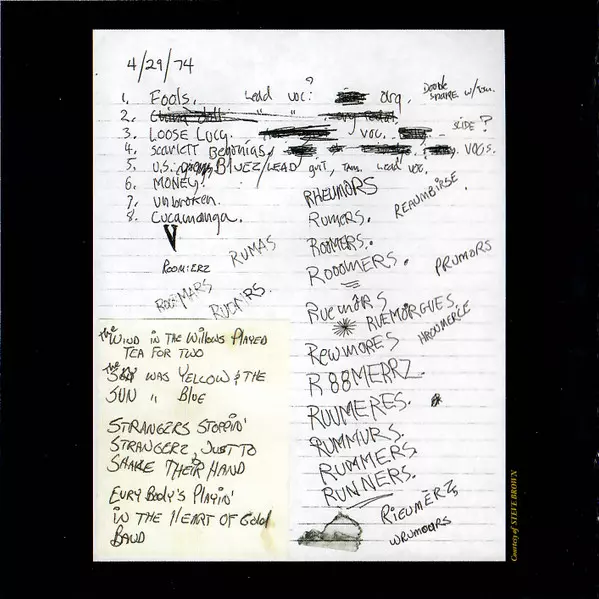 4/29/74
1. Fools. Lead voc? org. Double strange w/
2. China doll " "
3. Loose Lucy. voc. - slide?
4. Scarlett Begonias, VOCS.
5. U.S. Bluez/Lead guit, Lead voc.
6. MONEY!
7. Unbroken.
8. Cucamanga.
V
ROOMIERZ
RUMAS
RUEMRS.
RHEUMORS
REAUMBIRSE.
RUMERS.
ROOMERS.
ROOOMERS.
PRUMORS
RUEMORS
RUEMORGUES.
HROOMERCE
REWMORES
R88MERRZ.
RUUMERES.
RUMMURS.
RUMMERS
RUNNERS.
RIEUMERZ,
WRUMOURS
the WIND IN THE WILLOWS PLAYED
TEA FOR TWO
the SKY WAS YELLOW & THE
SUN " BLUE
STRANGERS STOPPIN'
STRANGERZ, JUST TO
SHAKE THEIR HAND
EURYBODY'S PLAYIN'
IN THE HEART OF GOLD
BAUD
Courtesy of STEVE BROWN